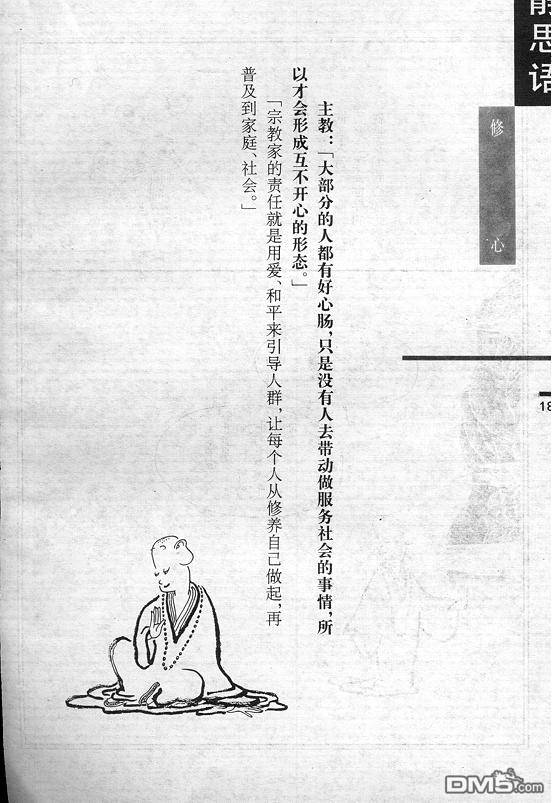 静思语
修心
18
主教：「大部分的人都有好心肠，只是没有人去带动做服务社会的事情，所
以才会形成互不开心的形态。」
「宗教家的责任就是用爱、和平来引导人群，让每个人从修养自己做起，再
普及到家庭、社会。」
DM5.com